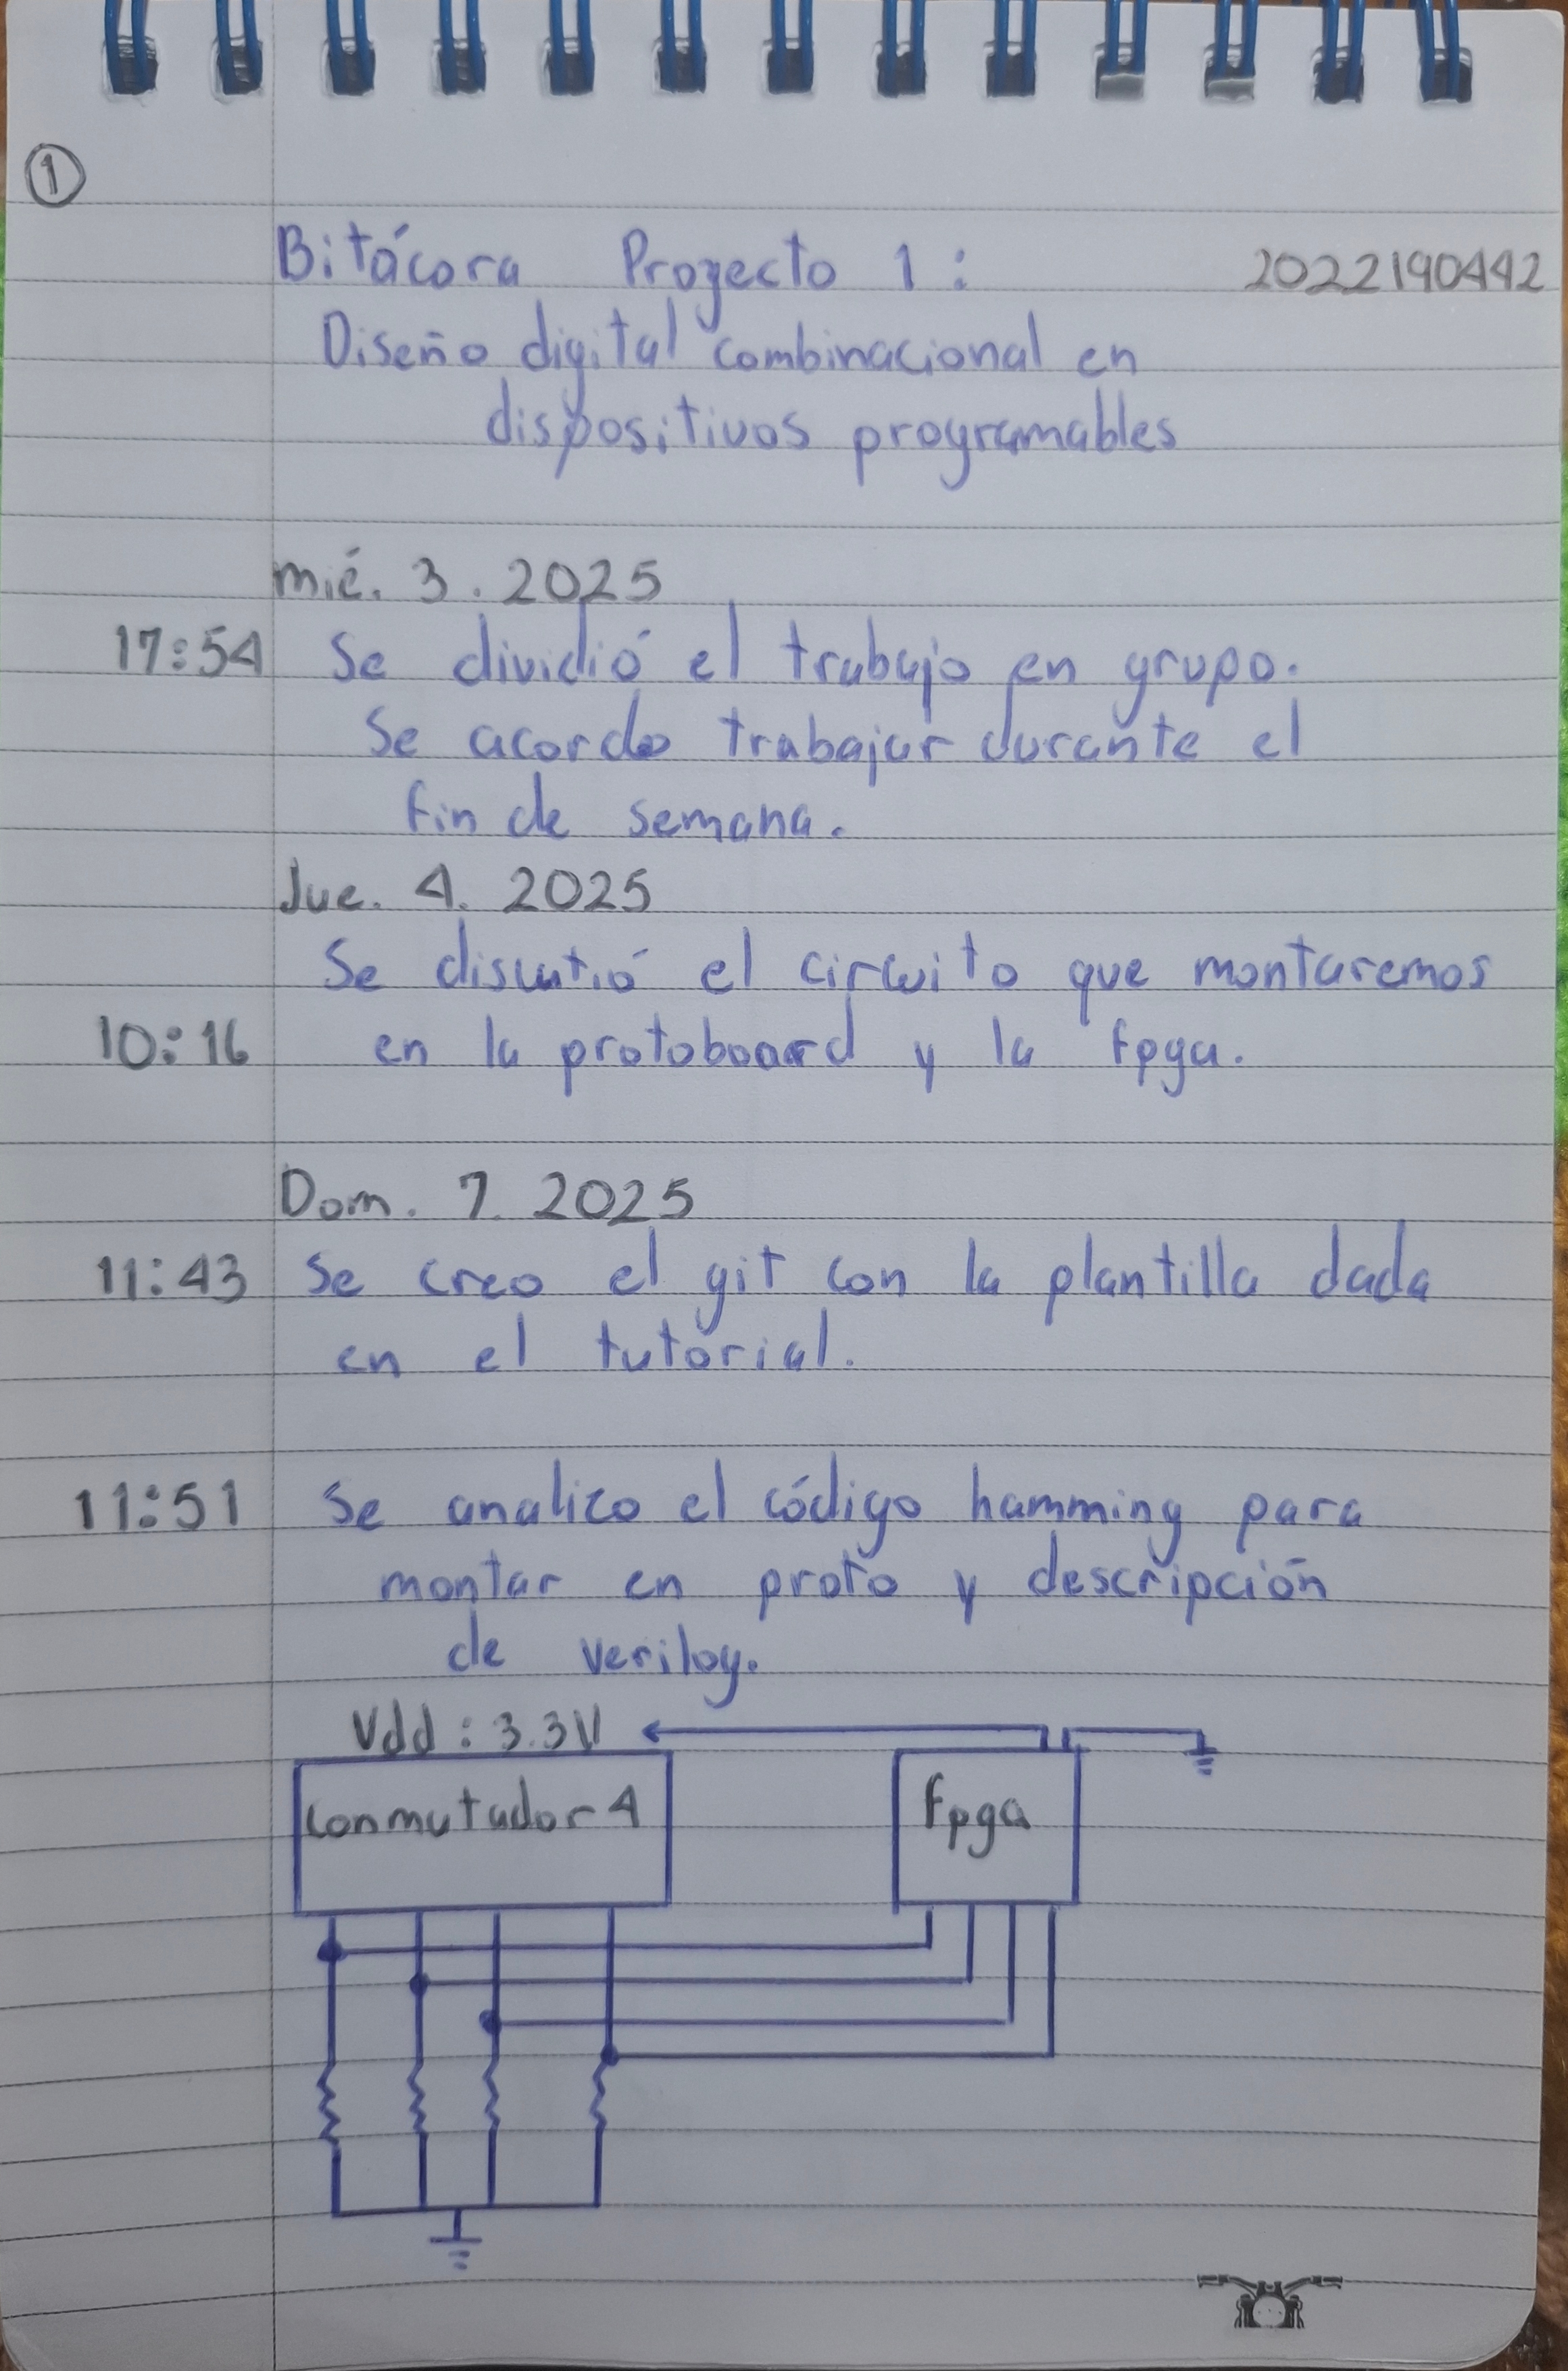 1
Bitácora Proyecto 1: 2022190442
Diseño digital combinacional en
dispositivos programables
mié. 3. 2025
17:54 Se dividió el trabajo en grupo.
Se acordo trabajar durante el
fin de semana.
Jue. 4. 2025
Se discutió el circuito que montaremos
10:16 en la protoboard y la fpga.
Dom. 7. 2025
11:43 Se creo el git con la plantilla dada
en el tutorial.
11:51 Se analizo el código hamming para
montar en proto y descripción
de verilog.
Vdd: 3.3V
Conmutador 4 fpga